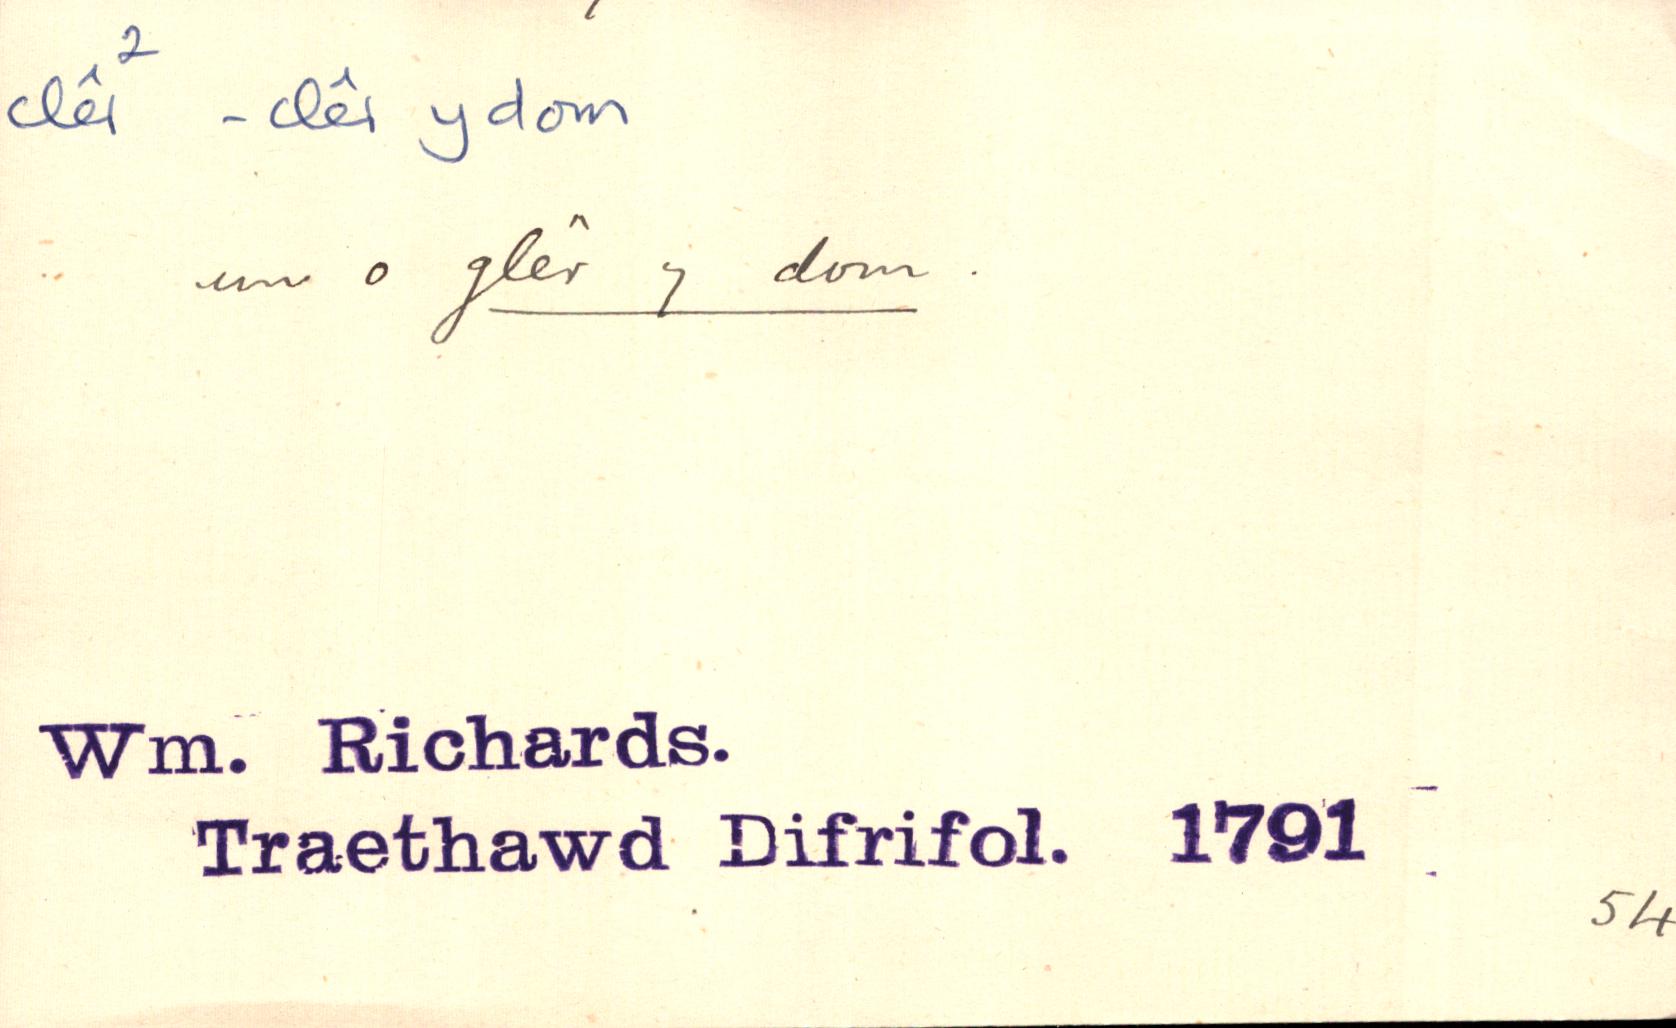 clêr² - clêr y dom
un o glêr y dom.
Wm. Richards.
Traethawd Difrifol. 1791
54